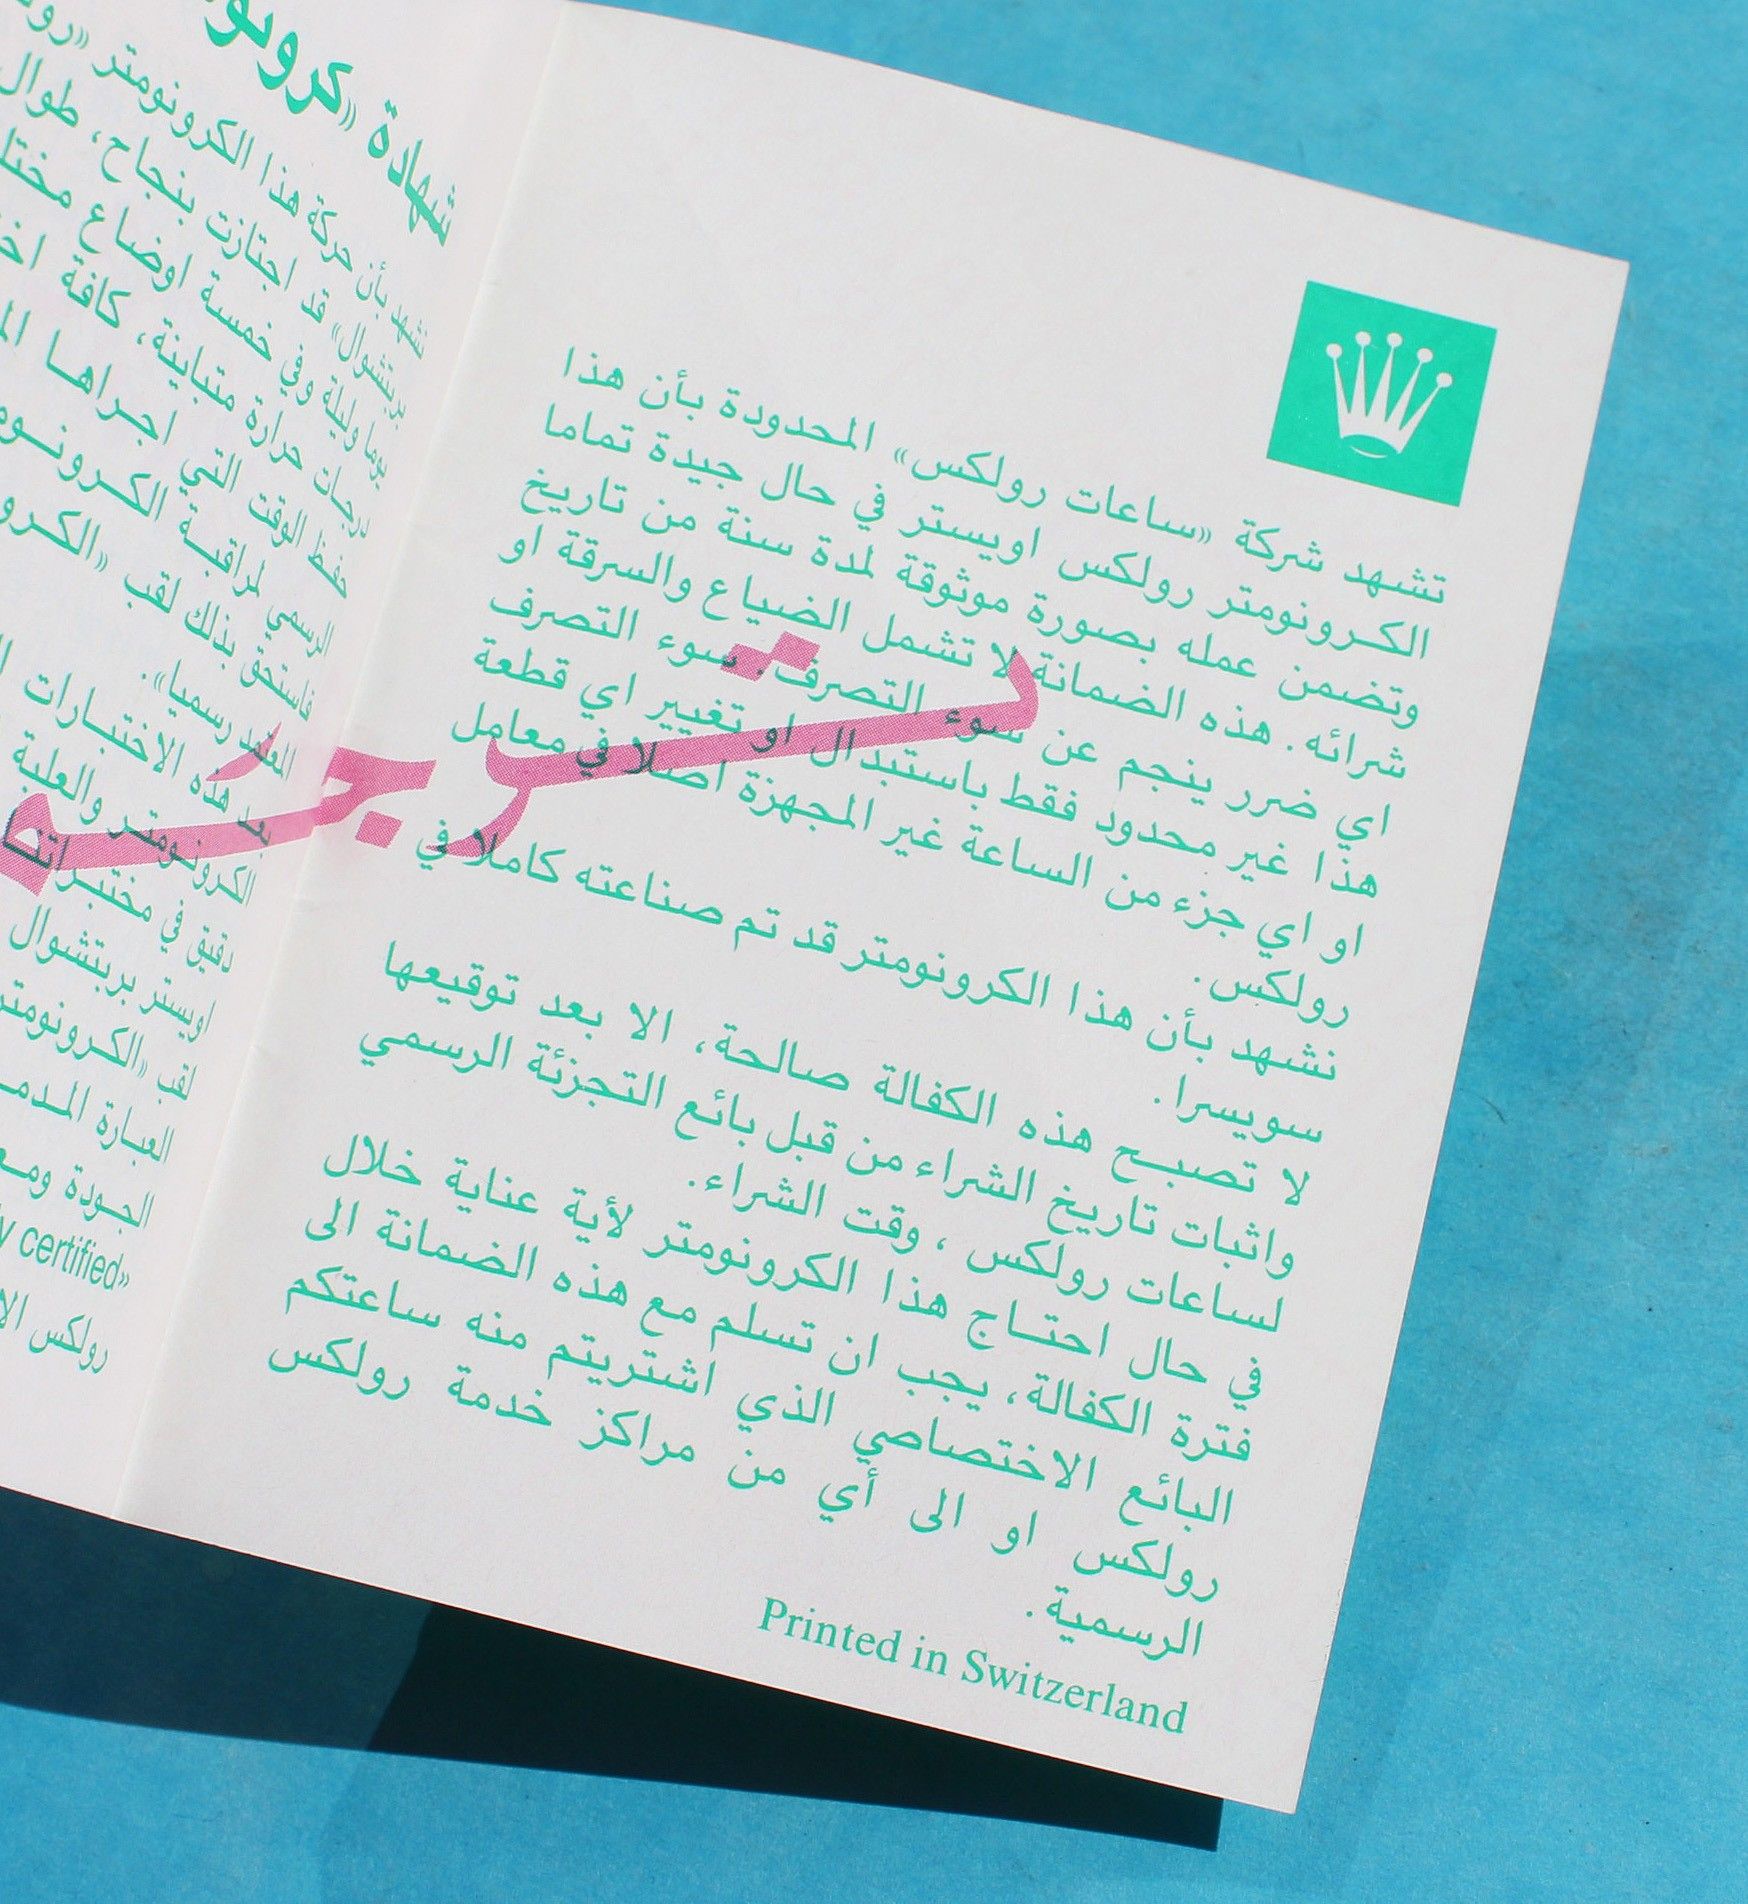 تشهد شركة «ساعات رولكس» المحدودة بأن هذا
الكرونومتر رولكس اويستر في حال جيدة تماما
وتضمن عمله بصورة موثوقة لمدة سنة من تاريخ
شرائه. هذه الضمانة لا تشمل الضياع والسرقة او
اي ضرر ينجم عن سوء التصرف. سوء التصرف
هذا غير محدود فقط باستبدال او تغيير اي قطعة
او اي جزء من الساعة غير المجهزة اصلا في معامل
رولكس.
نشهد بأن هذا الكرونومتر قد تم صناعته كاملا في
سويسرا.
لا تصبح هذه الكفالة صالحة، الا بعد توقيعها
واثبات تاريخ الشراء من قبل بائع التجزئة الرسمي
لساعات رولكس، وقت الشراء.
في حال احتاج هذا الكرونومتر لأية عناية خلال
فترة الكفالة، يجب ان تسلم مع هذه الضمانة الى
البائع الاختصاصي الذي اشتريتم منه ساعتكم
رولكس او الى أي من مراكز خدمة رولكس
الرسمية.
Printed in Switzerland
شهادة
نشهد بأن حركة هذا الكرونومتر
بربتشوال» قد اجتازت بنجاح، طوال
يوما وليلة وفي خمسة اوضاع
درجات حرارة متباينة، كافة
حفظ الوقت التي اجراها
الرسمي لمراقبة
فاستحق بذلك لقب
المعتمد رسميا».
بعد هذه الاختبارات
الكرونومتر والعلبة
دقيق في مختبر
اويستر بربتشوال
لقب «الكرونومتر
العبارة
الجودة
certified»
رولكس